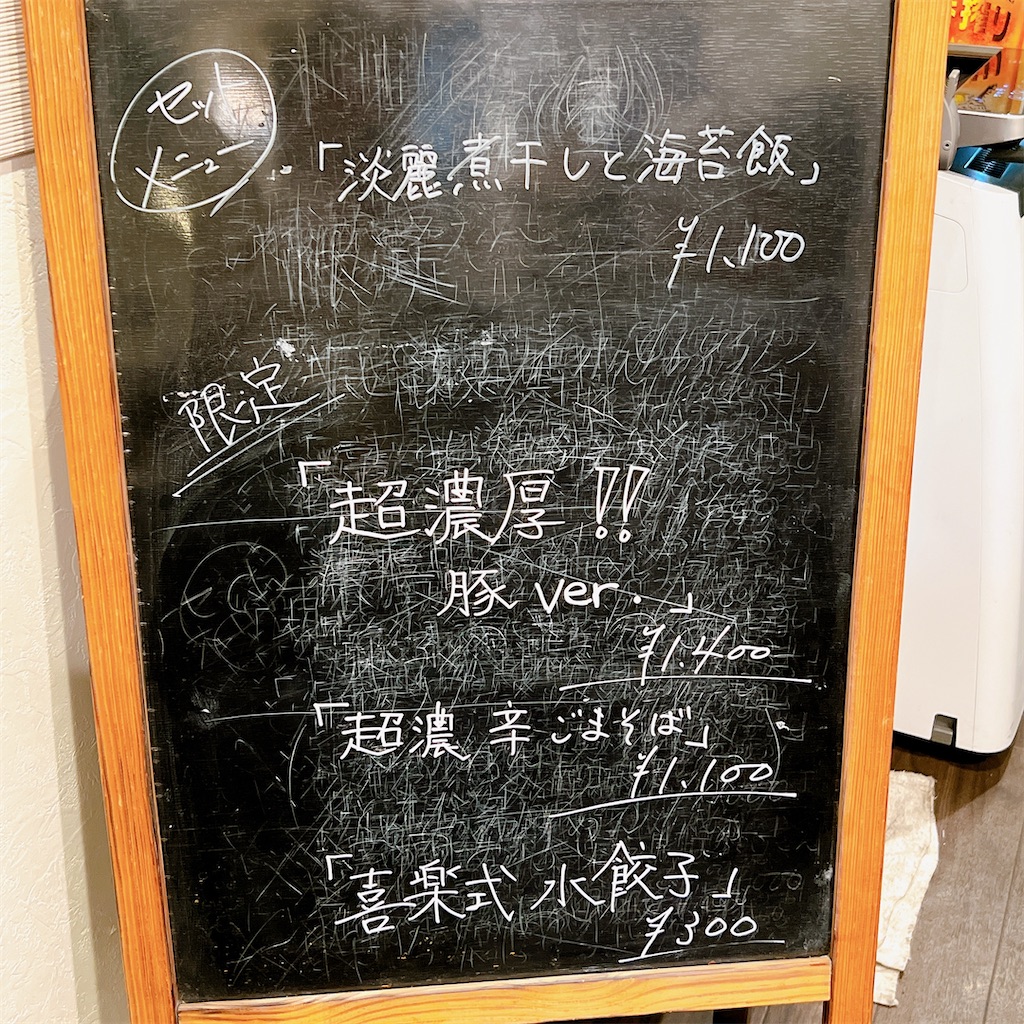 セット
メニュー
「淡麗煮干しと海苔飯」
¥1,100
限定
「超濃厚!!
豚 ver.」
¥1,400
「超濃 辛ごまそば」
¥1,100
「喜楽式 水餃子」
¥300
搾り